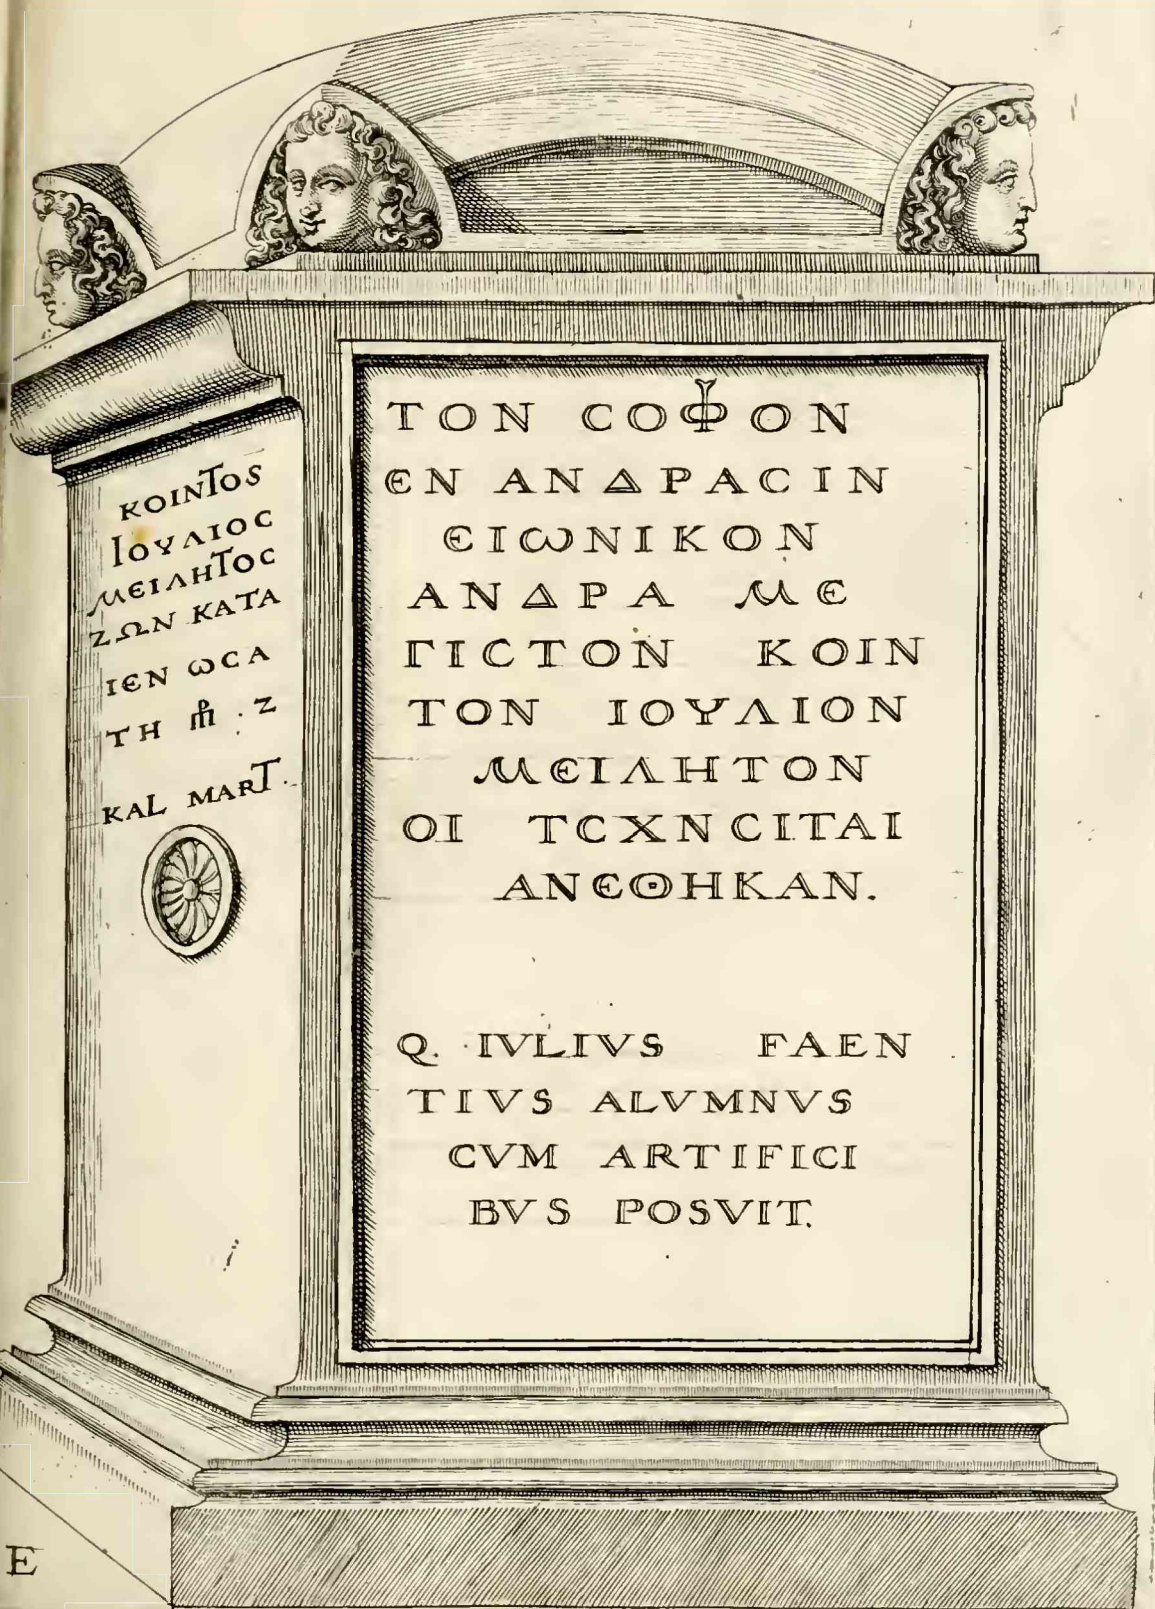 ΚΟΙΝΤΟS
ΙΟΥΛΙΟC
ΜЄΙΛΗΤΟC
ΖΩΝ ΚΑΤΑ
ΙЄΝ ωCΑ
ΤΗ . Ζ
KAL MART.
ΤΟΝ CΟΦΟΝ
ЄΝ ΑΝΔΡΑCΙΝ
ЄΙωΝΙΚΟΝ
ΑΝΔΡΑ ΜЄ
ΓΙCΤΟΝ ΚΟΙΝ
ΤΟΝ ΙΟΥΛΙΟΝ
ΜЄΙΛΗΤΟΝ
ΟΙ ΤCΧΝCΙΤΑΙ
ΑΝЄΘΗΚΑΝ.
Q. IVLIVS FAEN
TIVS ALVMNVS
CVM ARTIFICI
BVS POSVIT.
E